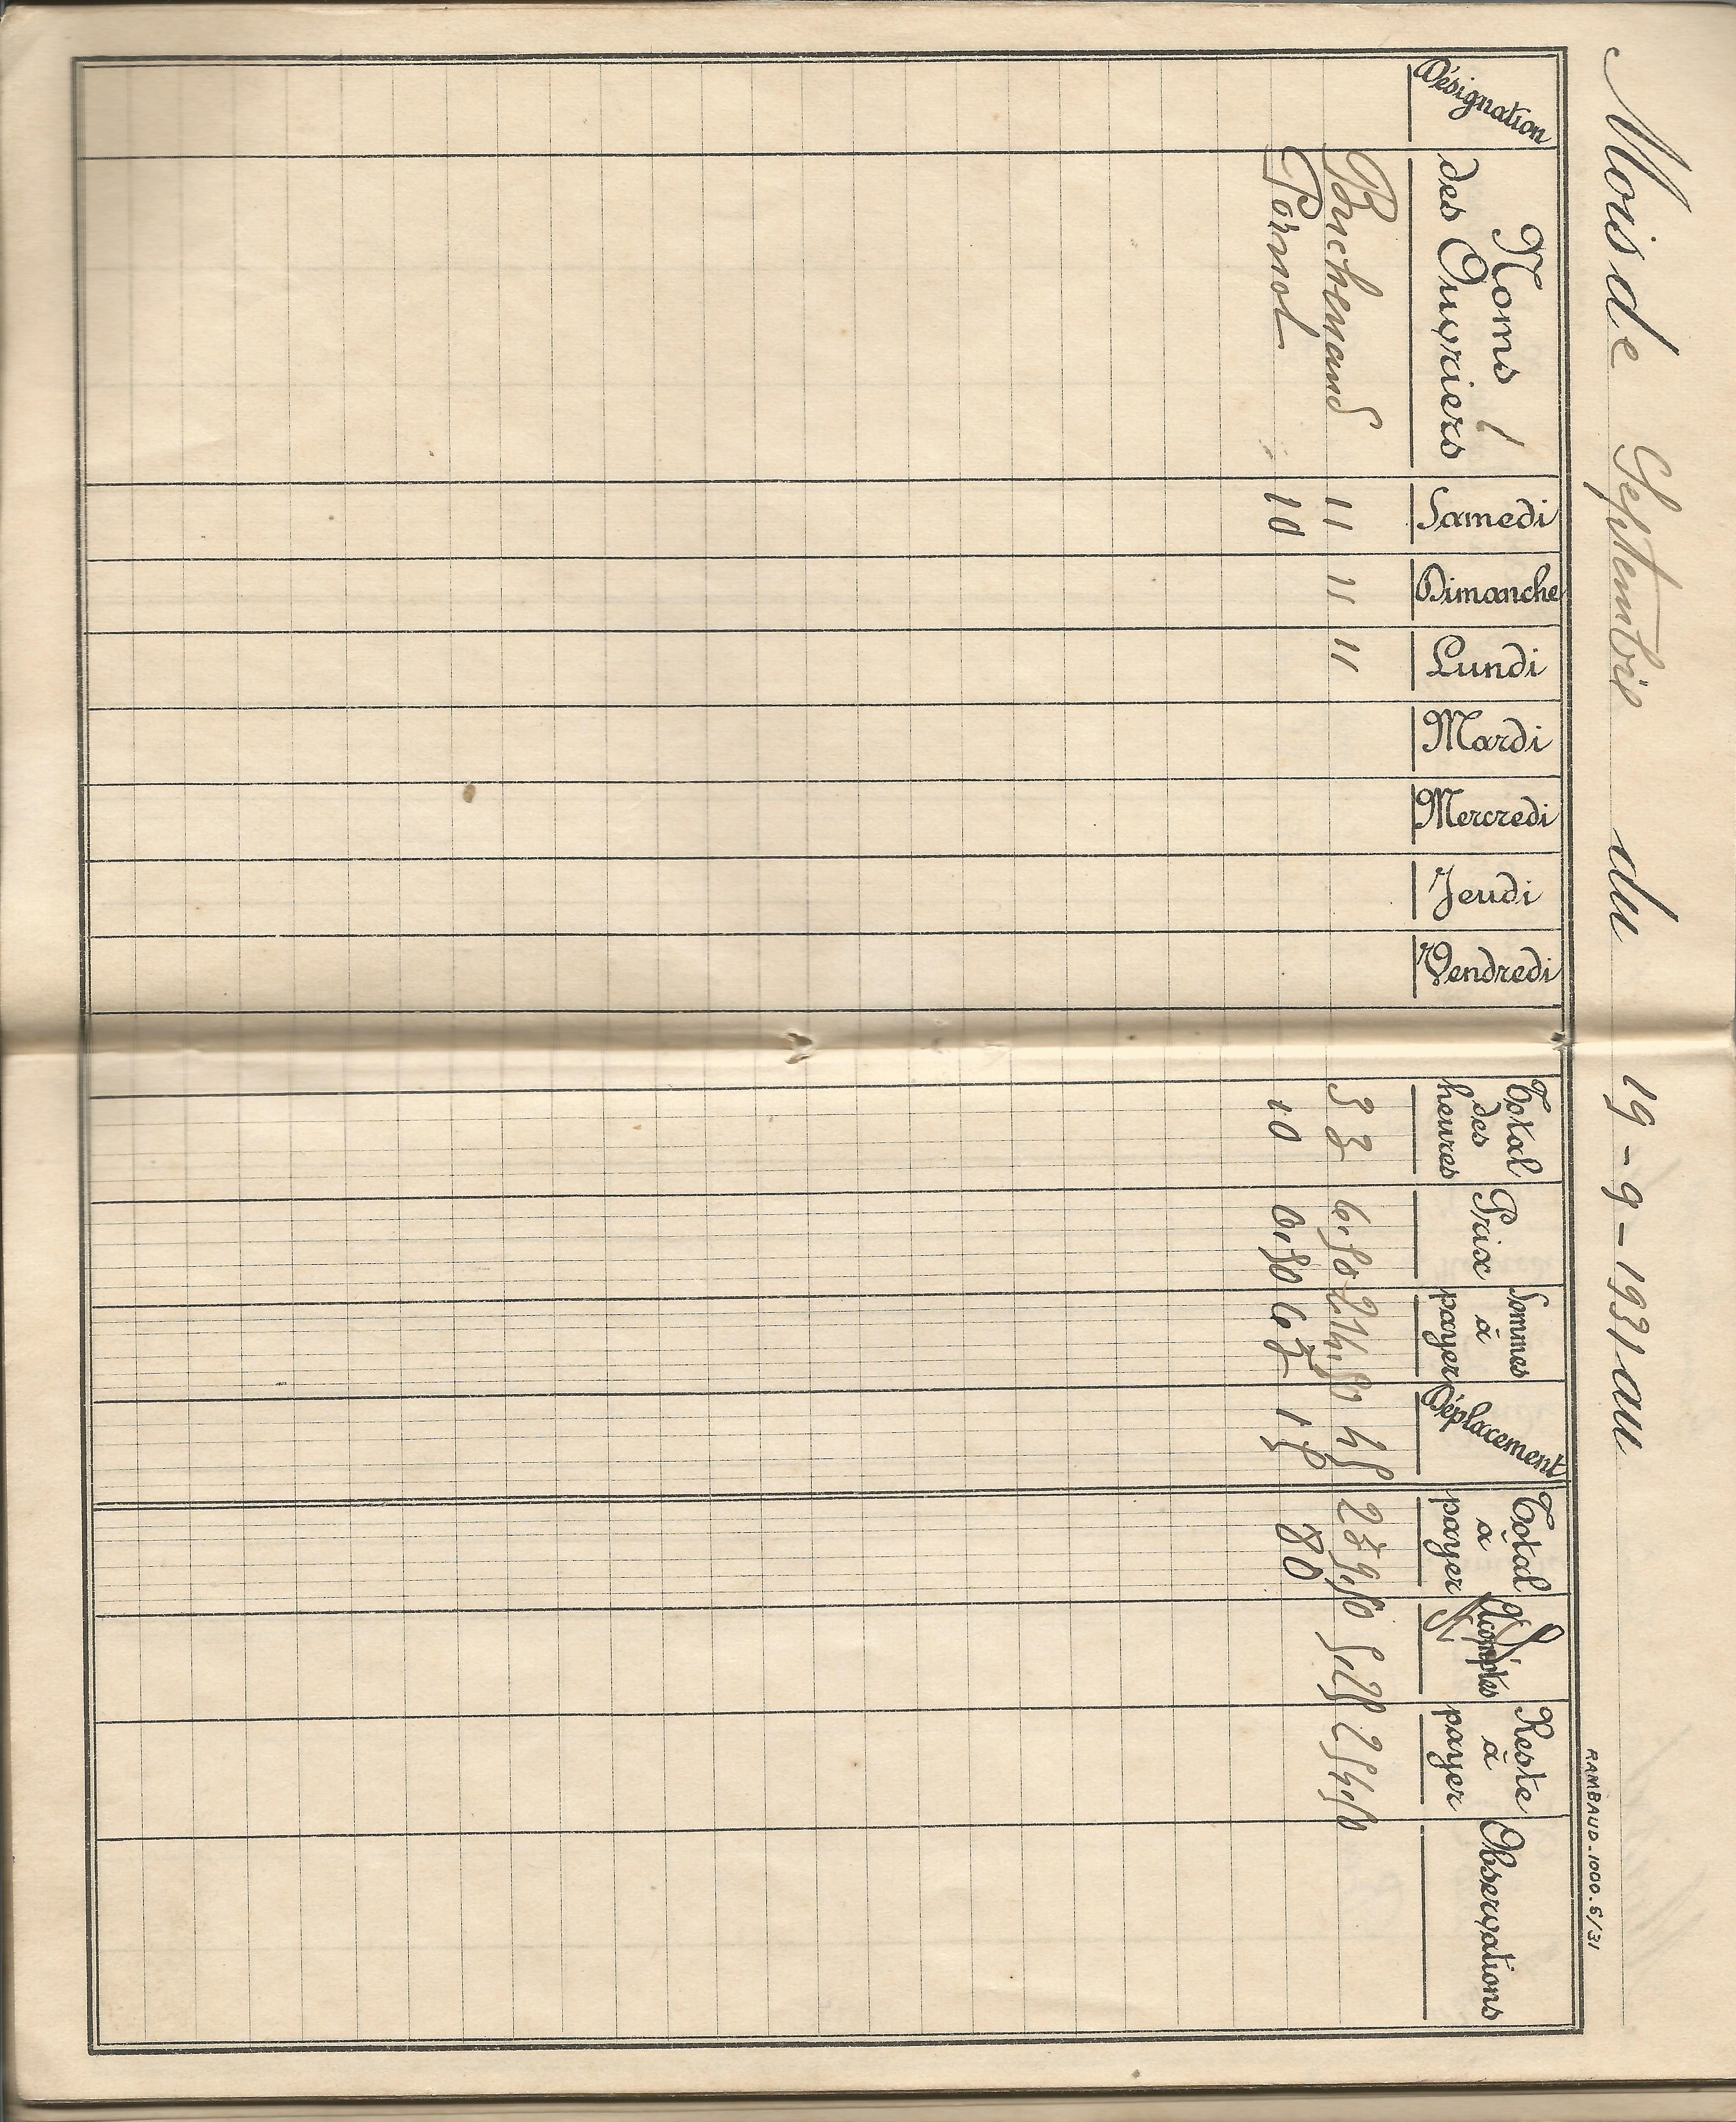 Mois de Septembre du 19-9-1931 au
RAMBAUD_1000.5/31
Désignation
Noms
des Ouvriers
Samedi
Dimanche
Lundi
Mardi
Mercredi
Jeudi
Vendredi
Total
des
heures
Prix
Sommes
à
payer
Déplacement
Total
à
payer
Acomptes
Reste
à
payer
Observations
Buchemand 11 11 11 33 6,50 214,50 45 259,50 5,25 254,50
10 10 6,50 65 15 80